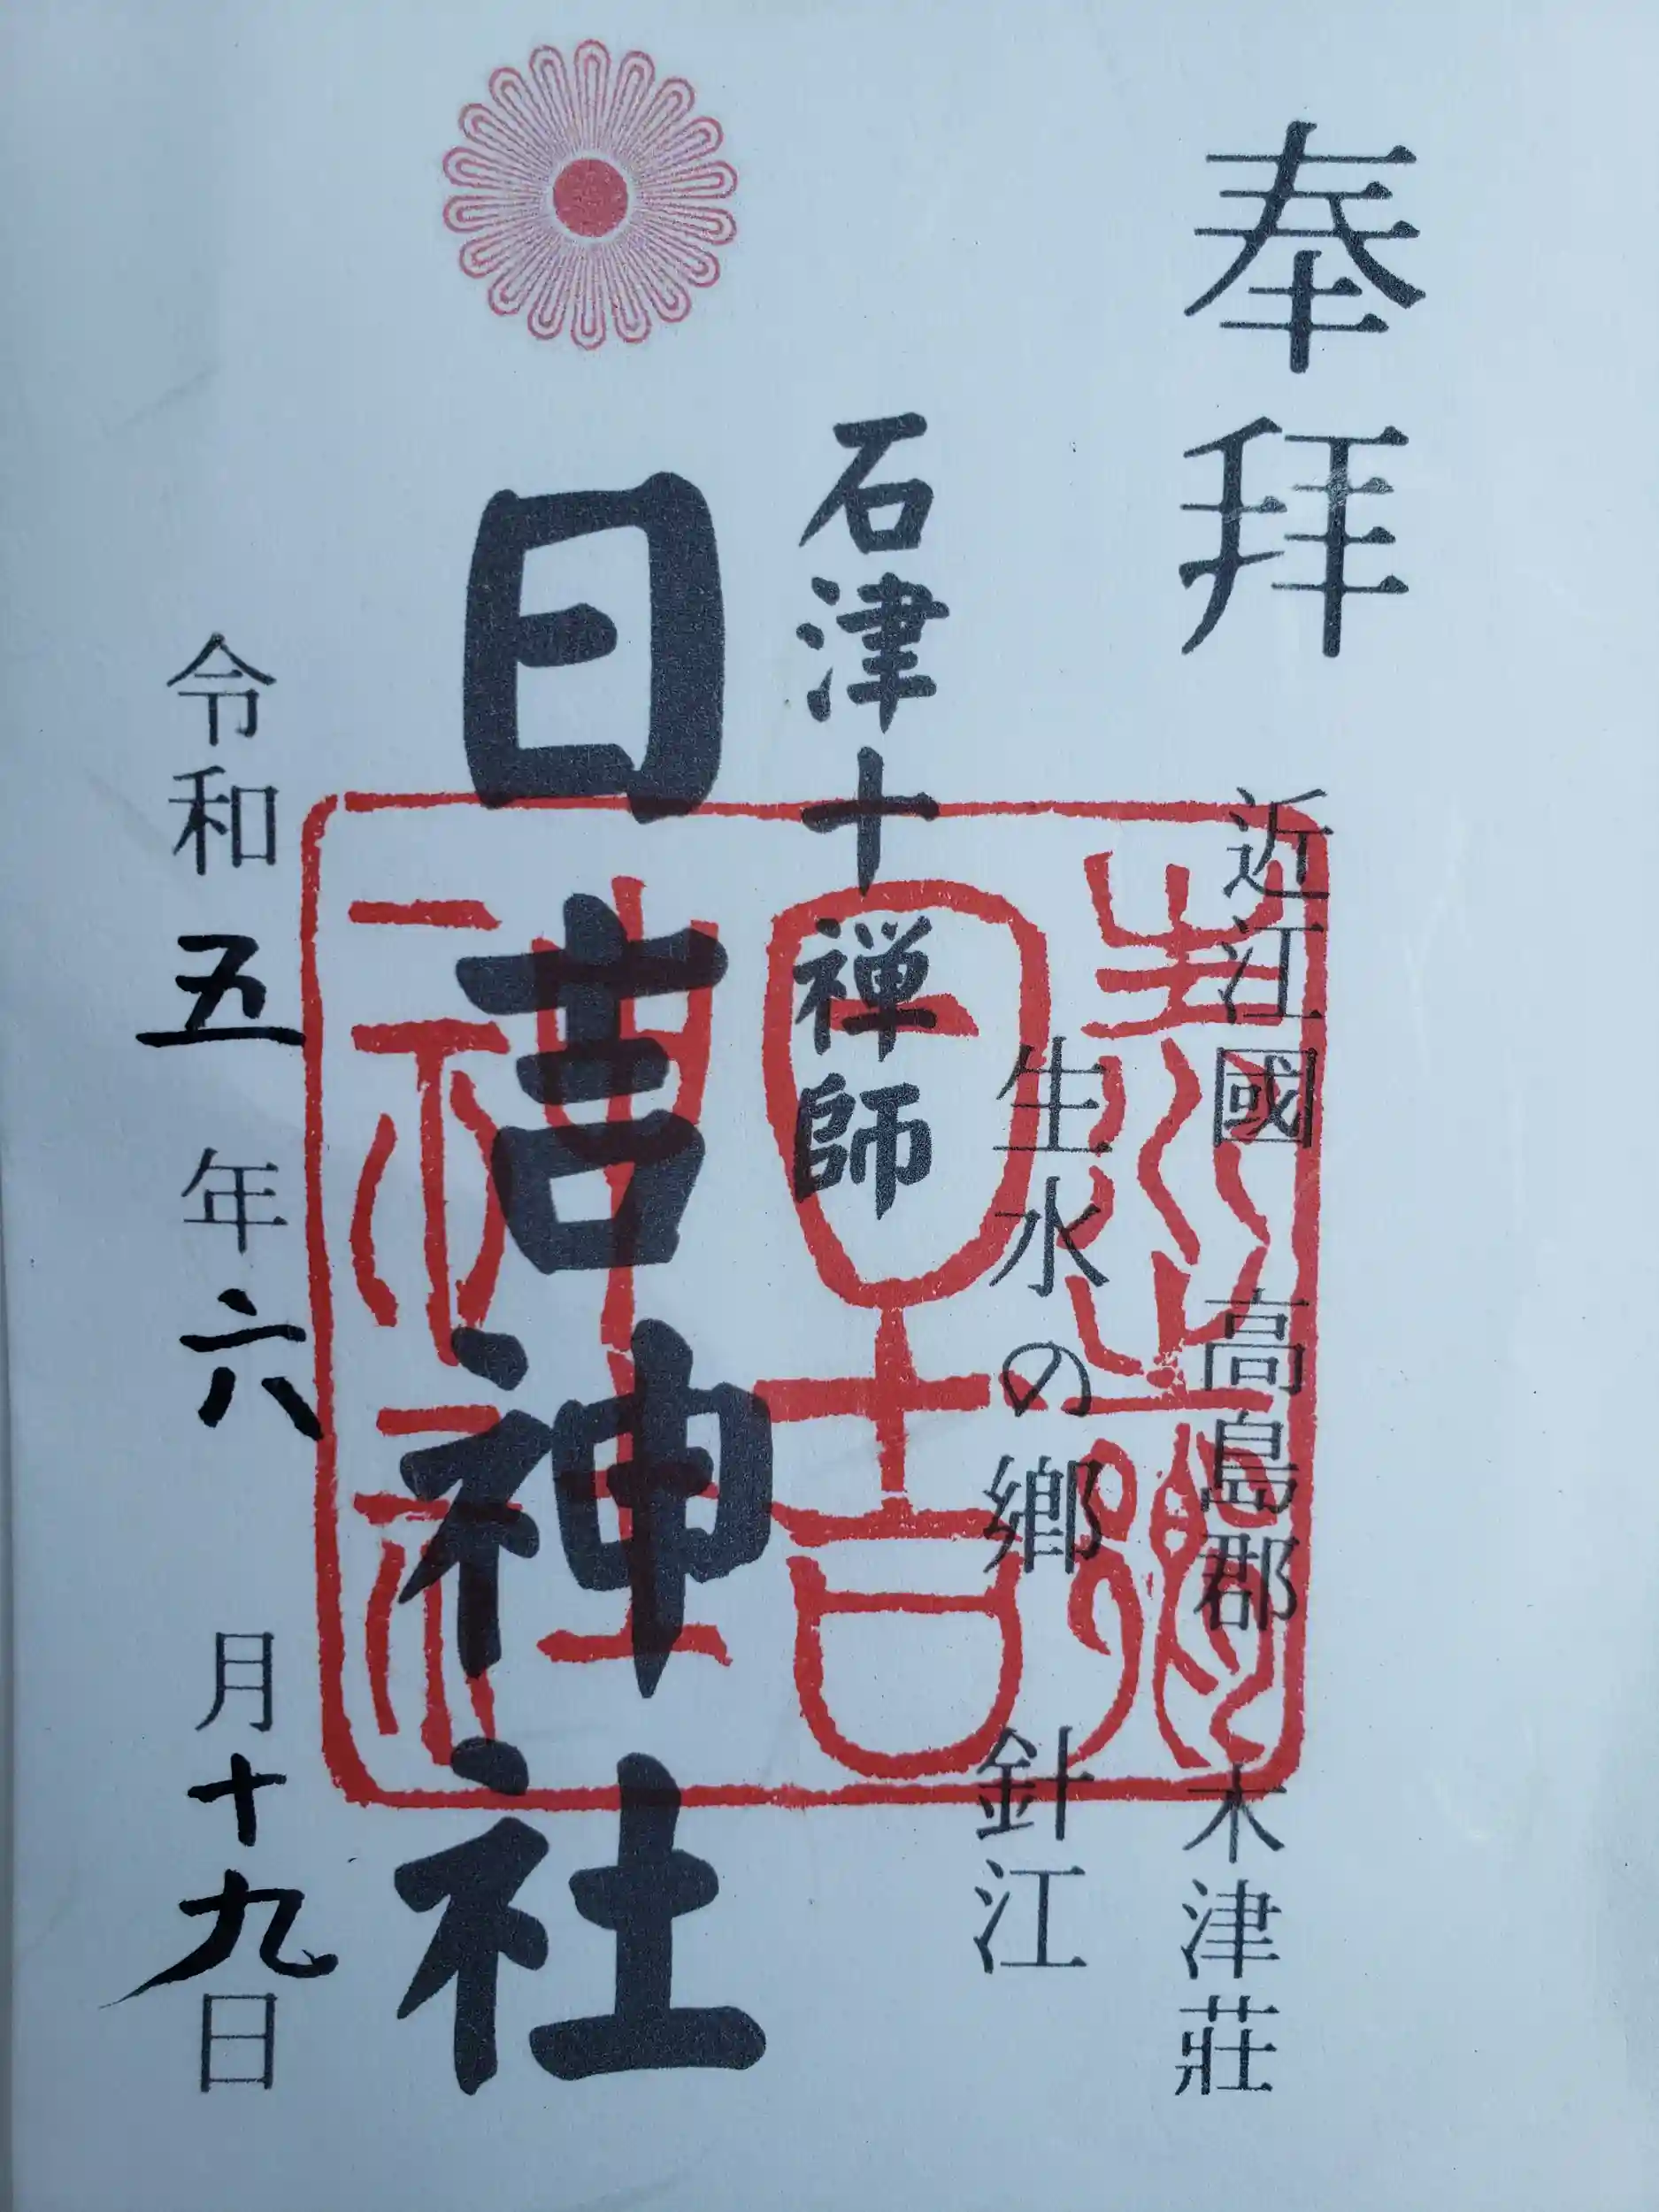 奉拜
近江國 高島郡 木津莊
生水の郷 針江
石津十禅師
日吉神社
令和五年六月十九日
生水之郷
日吉
神社